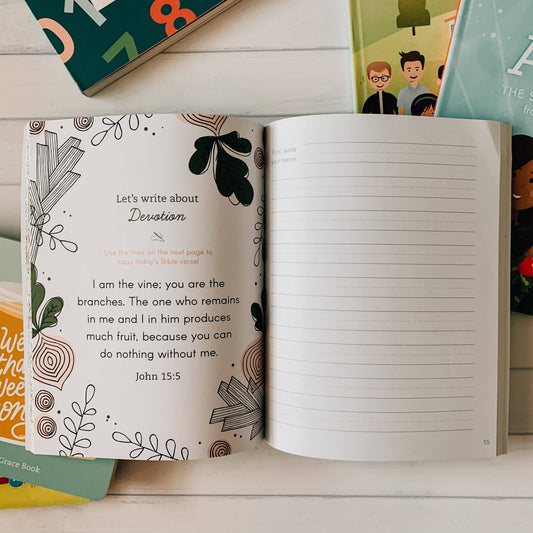 1
8
7
A
THE S
fr
First, write
your name
Let's write about
Devotion
Use the lines on the next page to
copy today's Bible verse!
I am the vine; you are the
branches. The one who remains
in me and I in him produces
much fruit, because you can
do nothing without me.
John 15:5
We
tha
wee
ong
Grace Book
55